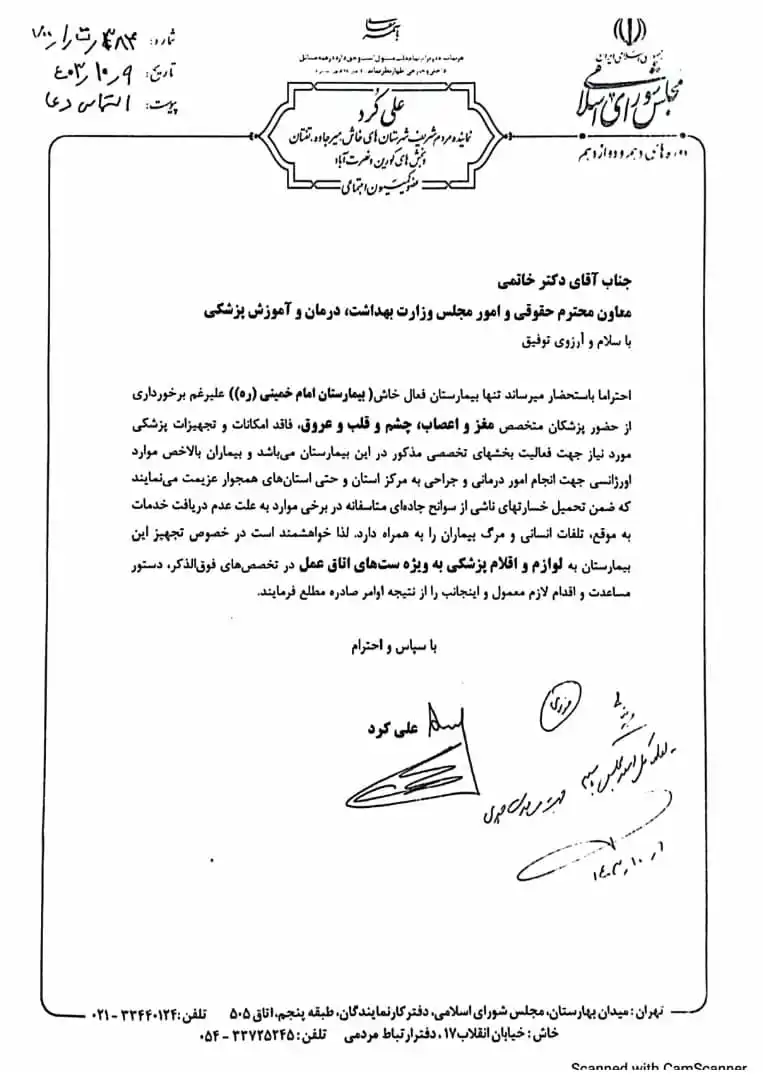 جمهوری اسلامی ایران
مجلس شورای اسلامی
دوره های دهم و دوازدهم
علی کُرد
نماینده مردم شریف شهرستان های خاش، میرجاوه، تفتان
و بخش های کورین و نصرت آباد
عضو کمیسیون اجتماعی
شماره:
تاریخ: ۴۰۳/۱۰/۹
پیوست: التماس دعا
جناب آقای دکتر خاتمی
معاون محترم حقوقی و امور مجلس وزارت بهداشت، درمان و آموزش پزشکی
با سلام و آرزوی توفیق
احتراما باستحضار میرساند تنها بیمارستان فعال خاش( بیمارستان امام خمینی (ره)) علیرغم برخورداری
از حضور پزشکان متخصص مغز و اعصاب، چشم و قلب و عروق، فاقد امکانات و تجهیزات پزشکی
مورد نیاز جهت فعالیت بخشهای تخصصی مذکور در این بیمارستان می‌باشد و بیماران بالاخص موارد
اورژانسی جهت انجام امور درمانی و جراحی به مرکز استان و حتی استان‌های همجوار عزیمت می‌نمایند
که ضمن تحمیل خسارتهای ناشی از سوانح جاده‌ای متاسفانه در برخی موارد به علت عدم دریافت خدمات
به موقع، تلفات انسانی و مرگ بیماران را به همراه دارد. لذا خواهشمند است در خصوص تجهیز این
بیمارستان به لوازم و اقلام پزشکی به ویژه ست‌های اتاق عمل در تخصص‌های فوق‌الذکر، دستور
مساعدت و اقدام لازم معمول و اینجانب را از نتیجه اوامر صادره مطلع فرمایند.
با سپاس و احترام
علی کرد
تهران : میدان بهارستان، مجلس شورای اسلامی، دفتر کار نمایندگان، طبقه پنجم، اتاق ۵۰۵ تلفن: ۳۳۴۴۰۱۲۴ - ۰۲۱
خاش : خیابان انقلاب ۱۷، دفتر ارتباط مردمی تلفن: ۳۳۷۲۵۲۴۵ - ۰۵۴
Scanned with CamScanner